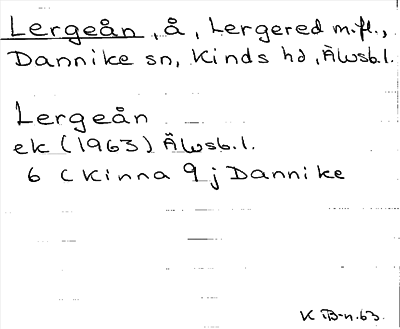 Lergeån, å, Lergered m.fl.,
Dannike sn, Kinds hd, Älvsb.l.
Lergeån
ek (1963) Älvsb.l.
6 C Kinna 9 j Dannike
K